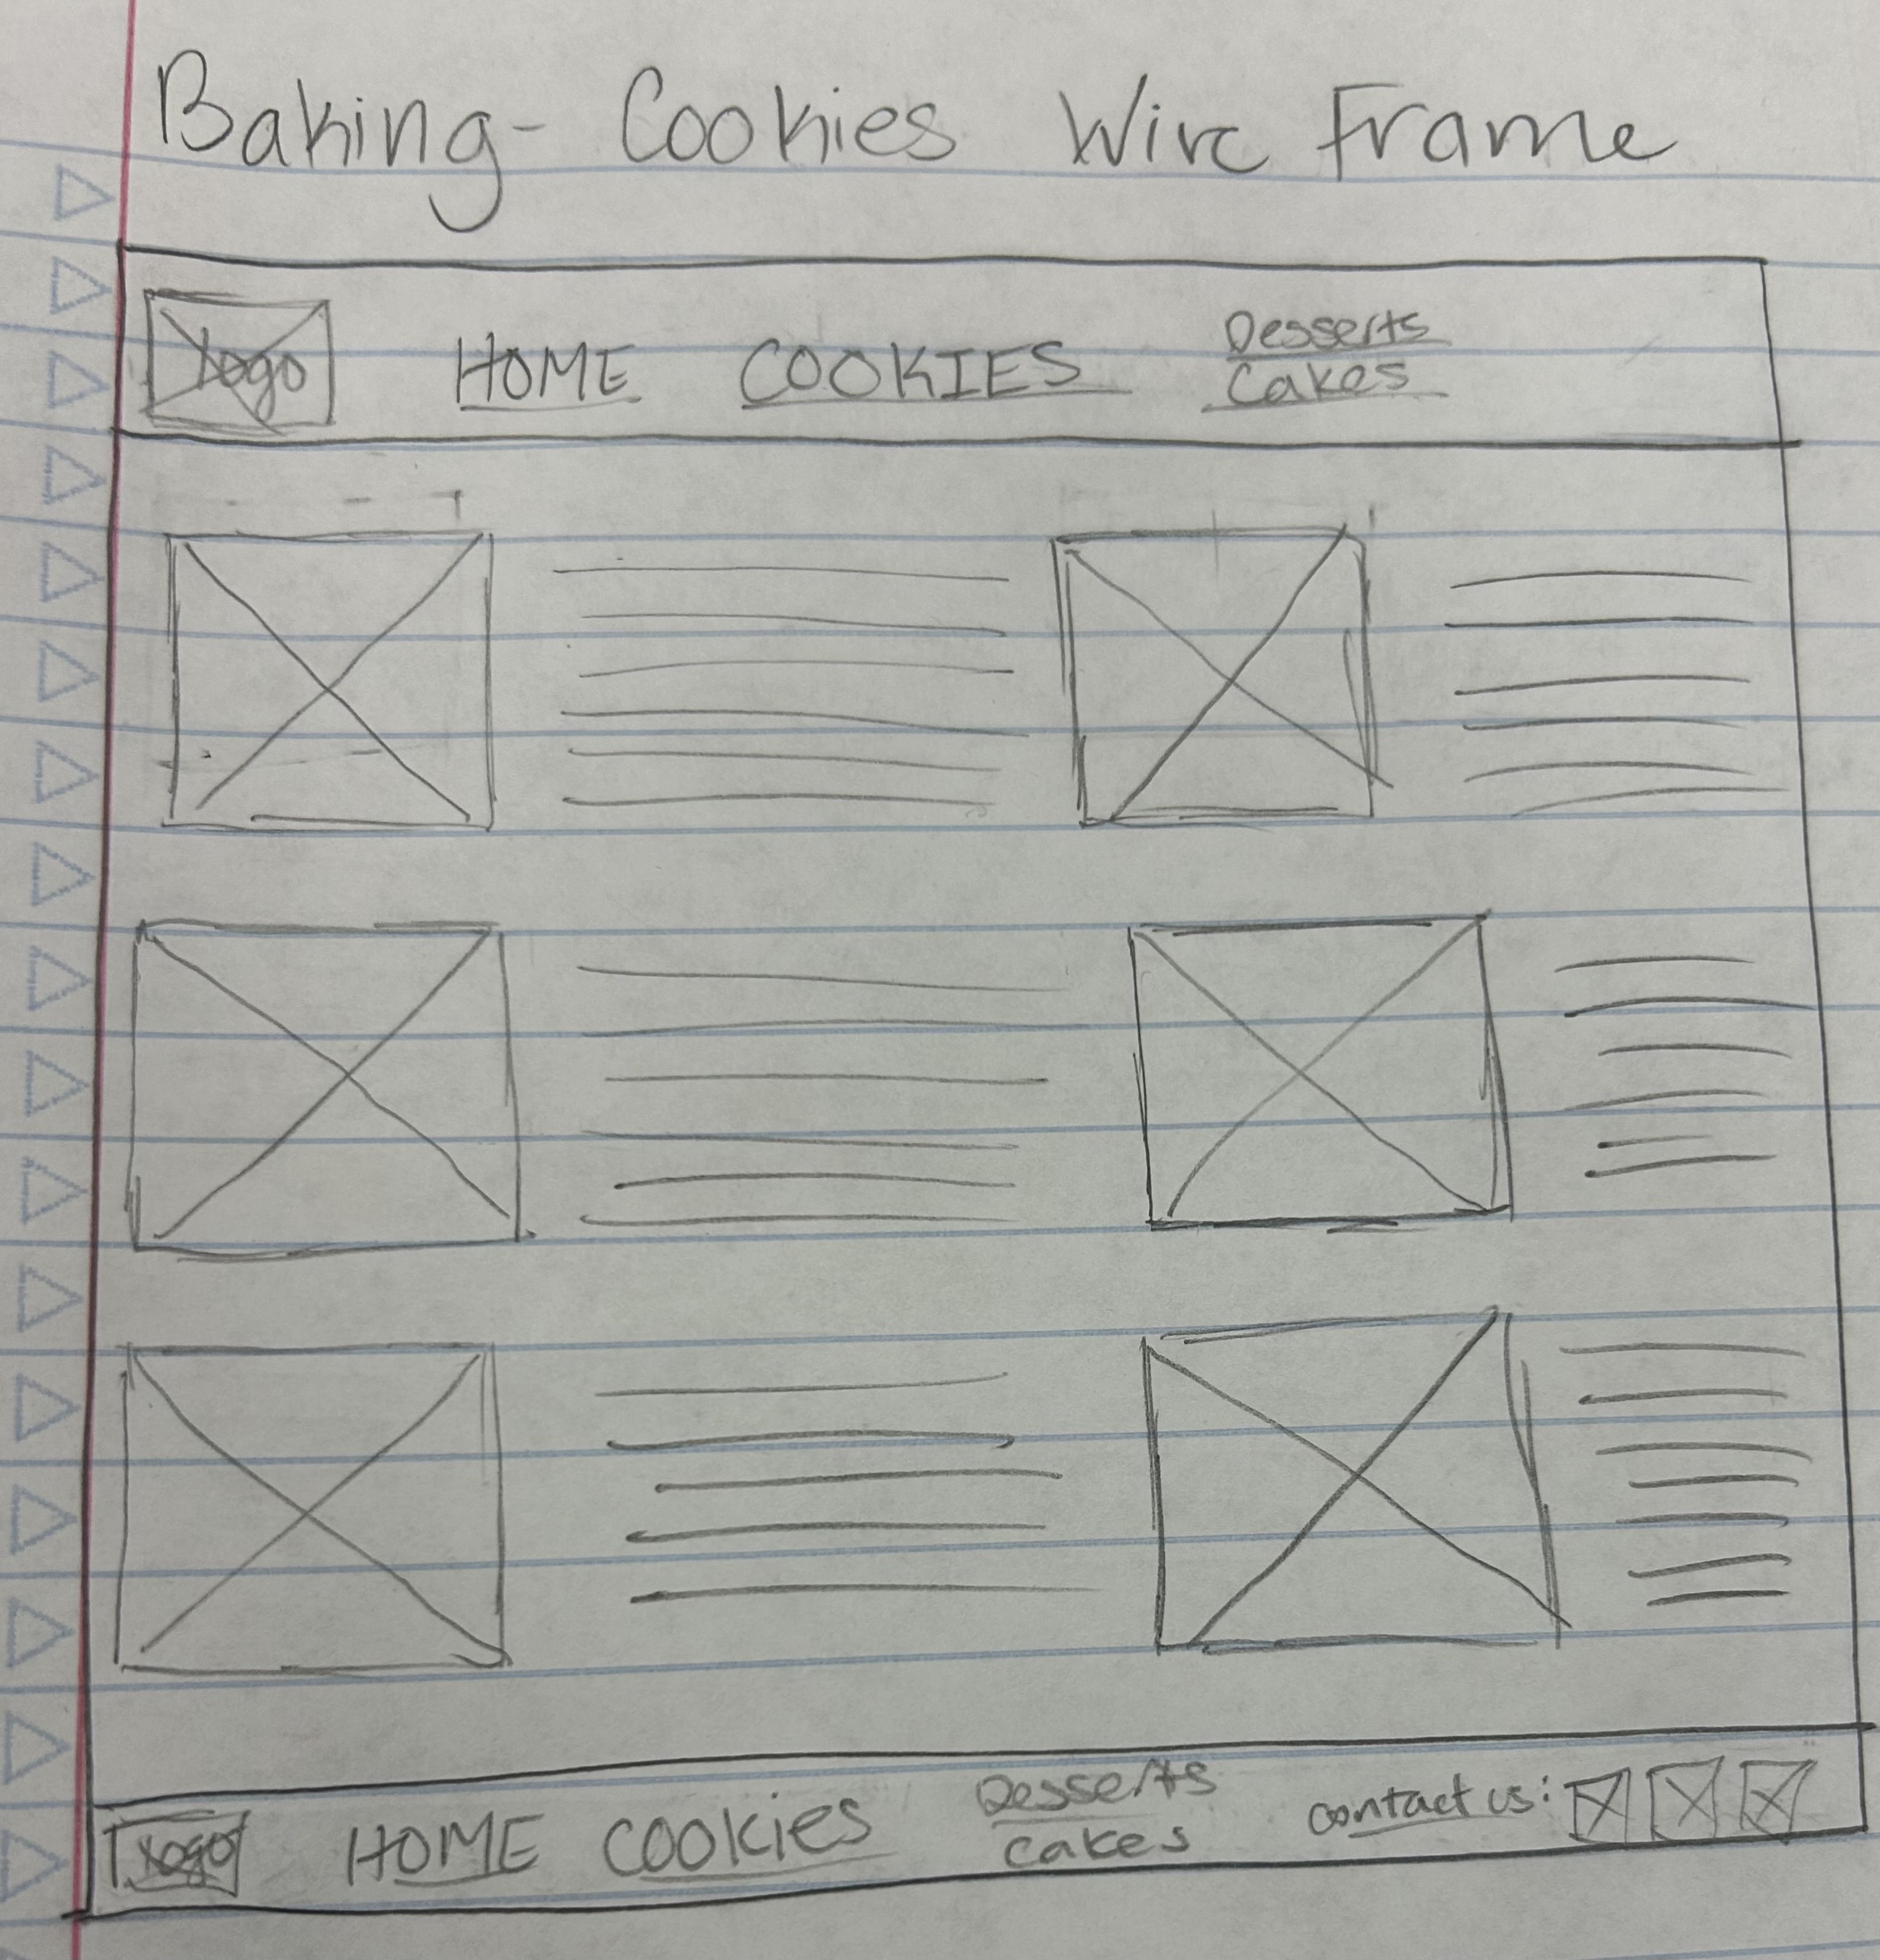 Baking- Cookies Wire Frame
logo HOME COOKIES Desserts
Cakes
logo HOME COOKies Desserts
cakes
contact us: